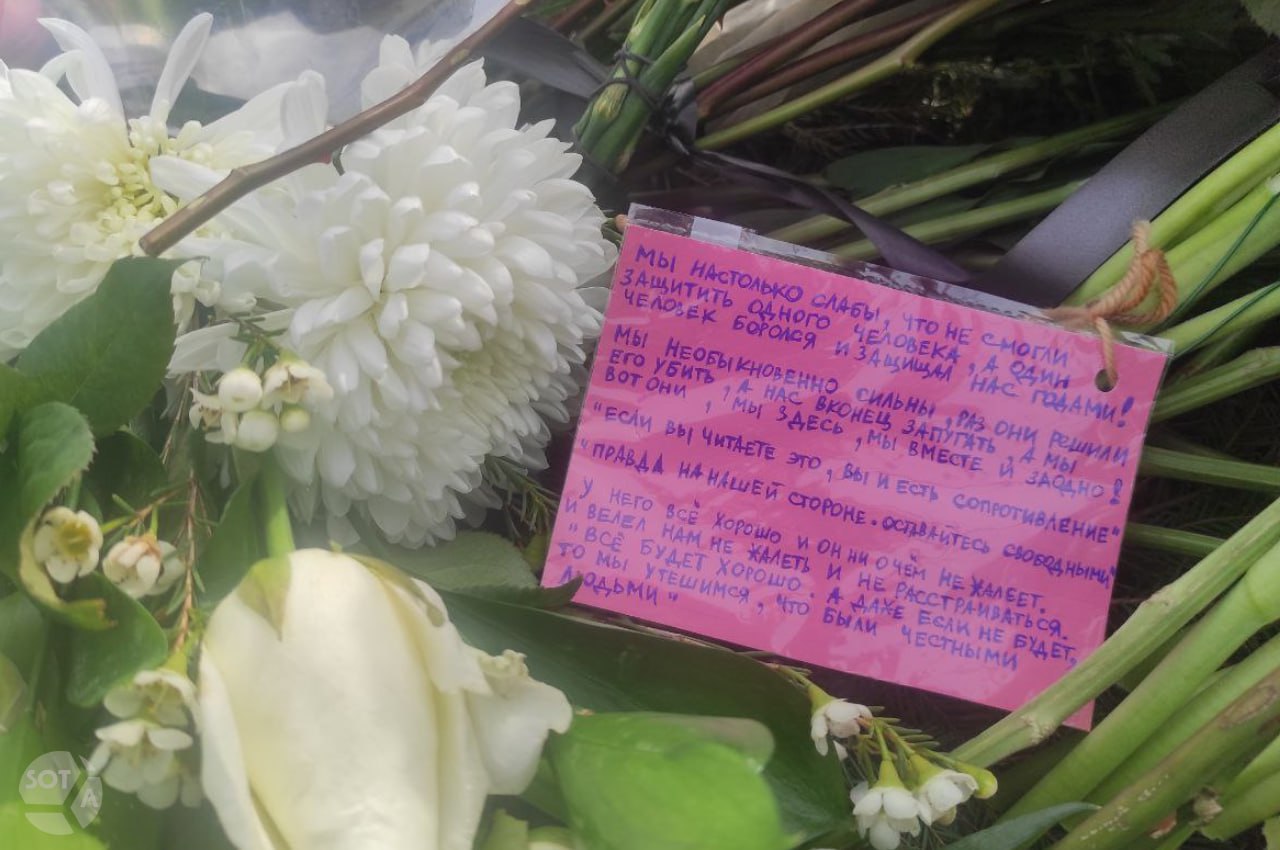 МЫ НАСТОЛЬКО СЛАБЫ, ЧТО НЕ СМОГЛИ
ЗАЩИТИТЬ ОДНОГО ЧЕЛОВЕКА, А ОДИН
ЧЕЛОВЕК БОРОЛСЯ И ЗАЩИЩАЛ НАС ГОДАМИ!
МЫ НЕОБЫКНОВЕННО СИЛЬНЫ, РАЗ ОНИ РЕШИЛИ
ЕГО УБИТЬ, А НАС ВКОНЕЦ ЗАПУГАТЬ, А МЫ
ВОТ ОНИ, МЫ ЗДЕСЬ, МЫ ВМЕСТЕ И ЗАОДНО!
"ЕСЛИ ВЫ ЧИТАЕТЕ ЭТО, ВЫ И ЕСТЬ СОПРОТИВЛЕНИЕ"
"ПРАВДА НА НАШЕЙ СТОРОНЕ. ОСТАВАЙТЕСЬ СВОБОДНЫМИ"
У НЕГО ВСЁ ХОРОШО И ОН НИ О ЧЁМ НЕ ЖАЛЕЕТ.
И ВЕЛЕЛ НАМ НЕ ЖАЛЕТЬ И НЕ РАССТРАИВАТЬСЯ.
"ВСЁ БУДЕТ ХОРОШО. А ДАЖЕ ЕСЛИ НЕ БУДЕТ,
ТО МЫ УТЕШИМСЯ, ЧТО БЫЛИ ЧЕСТНЫМИ
ЛЮДЬМИ"
SOTA